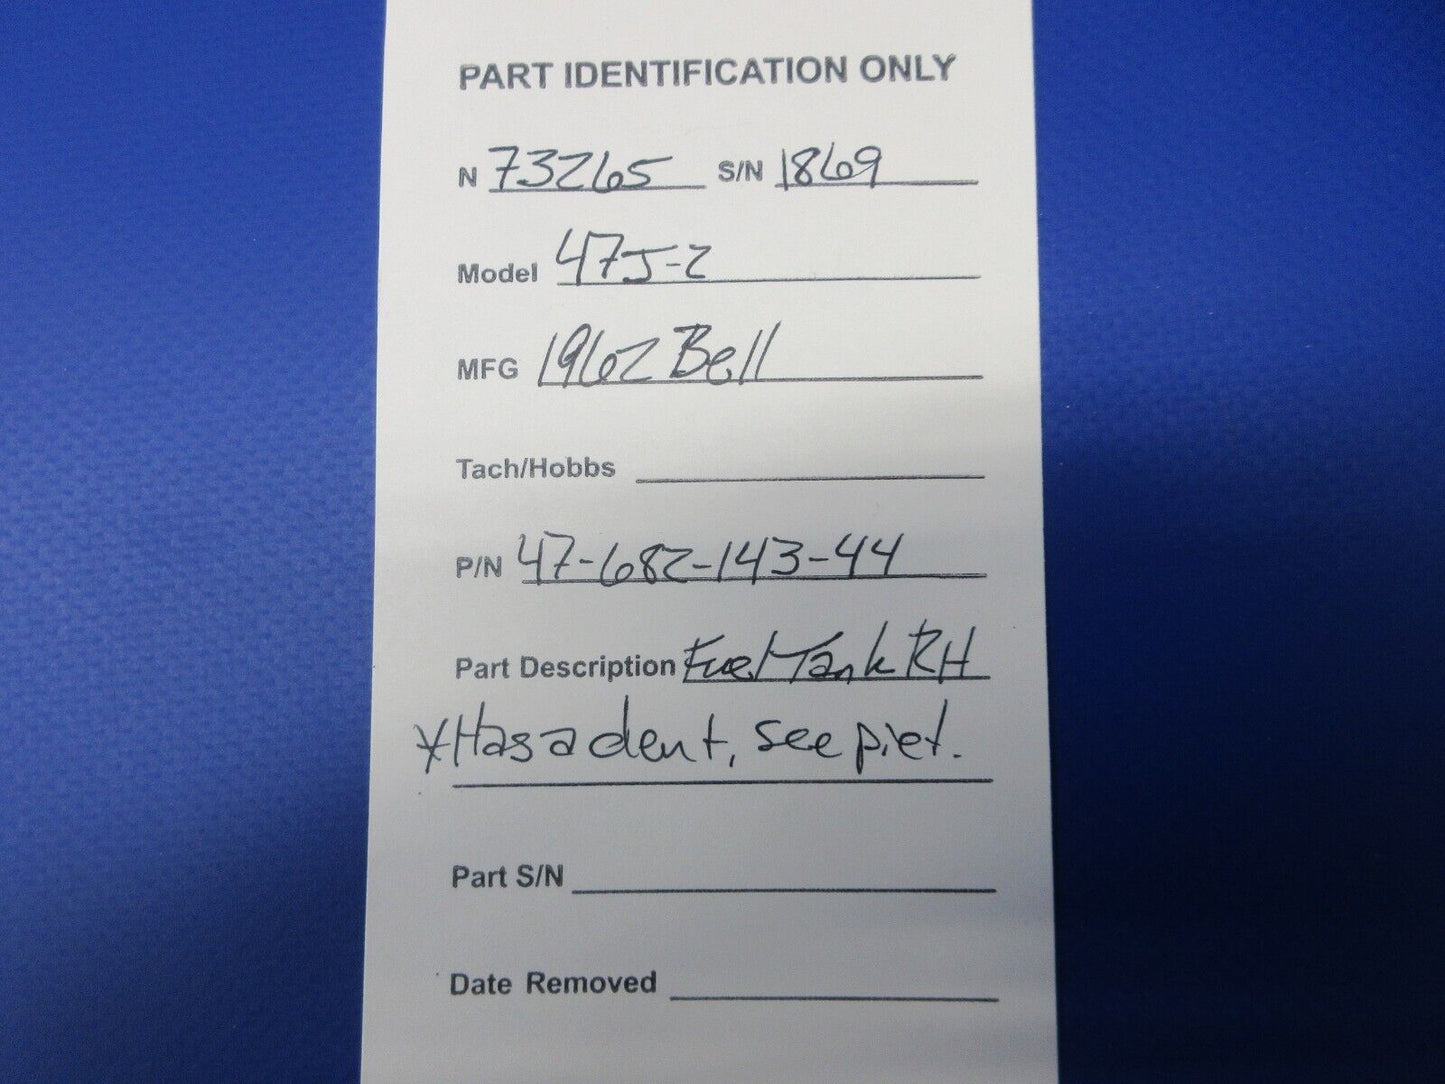 PART IDENTIFICATION ONLY
N 73265 S/N 1869
Model 47J-2
MFG 1962 Bell
Tach/Hobbs
P/N 47-682-143-44
Part Description Fuel Tank RH
*Has a dent, see pict.
Part S/N
Date Removed